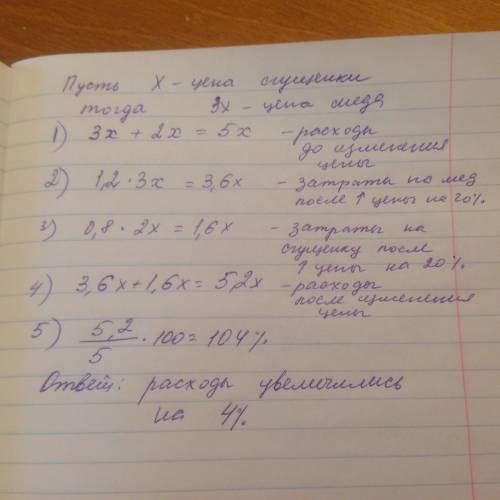 Пусть х – цена сгущенки
тогда 3х – цена меда
1) 3х + 2х = 5х – расходы
до изменения
цены
2) 1,2 · 3х = 3,6х – затраты на мед
после ↑ цены на 20%
3) 0,8 · 2х = 1,6х – затраты на
сгущенку после
↑ цены на 20%.
4) 3,6х + 1,6х = 5,2х – расходы
после изменения
цены
5) 5,2/5 · 100 = 104%
Ответ: расходы увеличились
на 4%